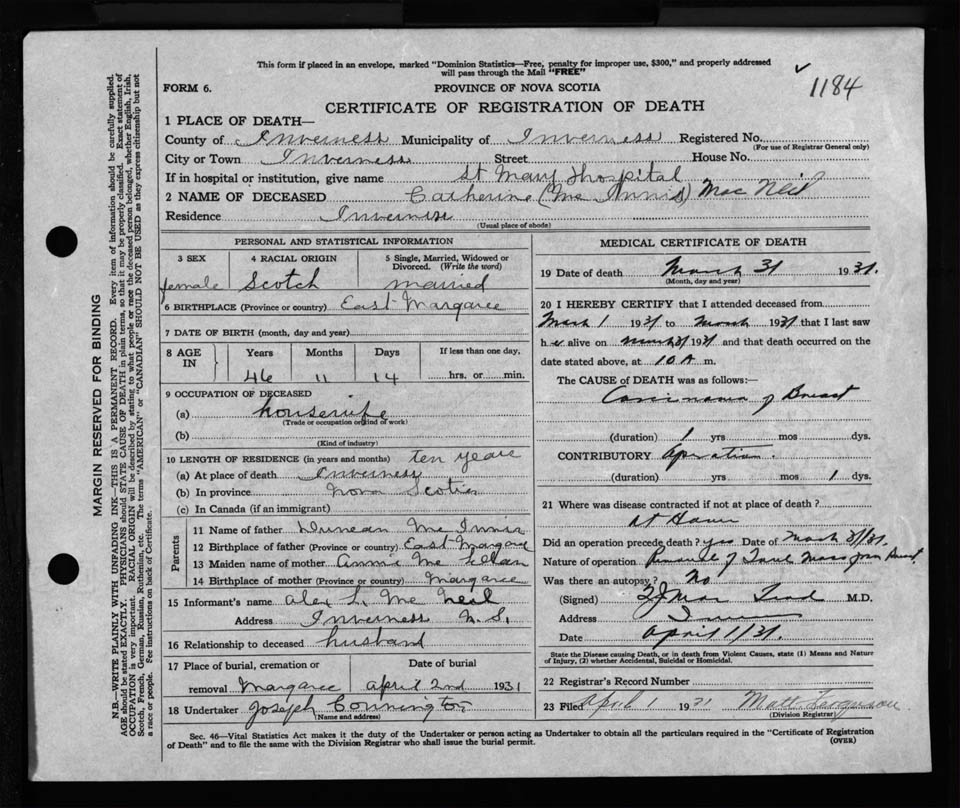 This form if placed in an envelope, marked "Dominion Statistics—Free, penalty for improper use, $300," and properly addressed
will pass through the Mail "FREE"
1184
FORM 6.
PROVINCE OF NOVA SCOTIA
CERTIFICATE OF REGISTRATION OF DEATH
1 PLACE OF DEATH—
County of Inverness Municipality of Inverness Registered No.
(For use of Registrar General only)
City or Town Inverness Street House No.
If in hospital or institution, give name St Mary Hospital
2 NAME OF DECEASED Catherine (Mc Innis) Mac Neil
Residence Inverness
(Usual place of abode)
PERSONAL AND STATISTICAL INFORMATION
3 SEX 4 RACIAL ORIGIN 5 Single, Married, Widowed or Divorced. (Write the word)
female Scotch married
6 BIRTHPLACE (Province or country) East Margaree
7 DATE OF BIRTH (month, day and year)
8 AGE IN Years Months Days If less than one day,
46 11 14 hrs. or min.
9 OCCUPATION OF DECEASED
(a) housewife
(Trade or occupation or kind of work)
(b)
(Kind of industry)
10 LENGTH OF RESIDENCE (in years and months) ten years
(a) At place of death Inverness
(b) In province Nova Scotia
(c) In Canada (if an immigrant)
Parents
11 Name of father Duncan Mc Innis
12 Birthplace of father (Province or country) East Margaree
13 Maiden name of mother Annie Mc Lellan
14 Birthplace of mother (Province or country) Margaree
15 Informant's name Alex L. Mc Neil
Address Inverness N.S.
16 Relationship to deceased husband
17 Place of burial, cremation or removal Margaree Date of burial April 2nd 1931
18 Undertaker Joseph Connington
(Name and address)
MEDICAL CERTIFICATE OF DEATH
19 Date of death March 31 1931.
(Month, day and year)
20 I HEREBY CERTIFY that I attended deceased from
March 1 1931 to March 1931 that I last saw
her alive on March 31 1931 and that death occurred on the
date stated above, at 10 A m.
The CAUSE OF DEATH was as follows:—
Carcinoma of Breast
(duration) 1 yrs mos dys.
CONTRIBUTORY Operation.
(duration) yrs mos 1 dys.
21 Where was disease contracted if not at place of death?
At Home
Did an operation precede death? yes Date of March 31/31.
Nature of operation Removal of from Breast
Was there an autopsy? No
(Signed) M.D.
Address
Date April 1/31.
State the Disease causing Death, or in death from Violent Causes, state (1) Means and Nature
of Injury, (2) whether Accidental, Suicidal or Homicidal.
22 Registrar's Record Number
23 Filed April 1 1931 Matt. Ferguson
(Division Registrar)
Sec. 46—Vital Statistics Act makes it the duty of the Undertaker or person acting as Undertaker to obtain all the particulars required in the "Certificate of Registration
of Death" and to file the same with the Division Registrar who shall issue the burial permit.
(OVER)
MARGIN RESERVED FOR BINDING
N.B.—WRITE PLAINLY WITH UNFADING INK—THIS IS A PERMANENT RECORD. Every item of information should be carefully supplied.
AGE should be stated EXACTLY. PHYSICIANS should STATE CAUSE OF DEATH in plain terms, so that it may be properly classified. Exact statement of
OCCUPATION is very important. RACIAL ORIGIN will be described by stating to what people or race the deceased person belonged, whether English, Irish,
Scotch, French, German, Russian, Ruthenian, etc. The terms "AMERICAN" or "CANADIAN" SHOULD NOT BE USED as they express citizenship but not
a race or people. See instructions on back of Certificate.